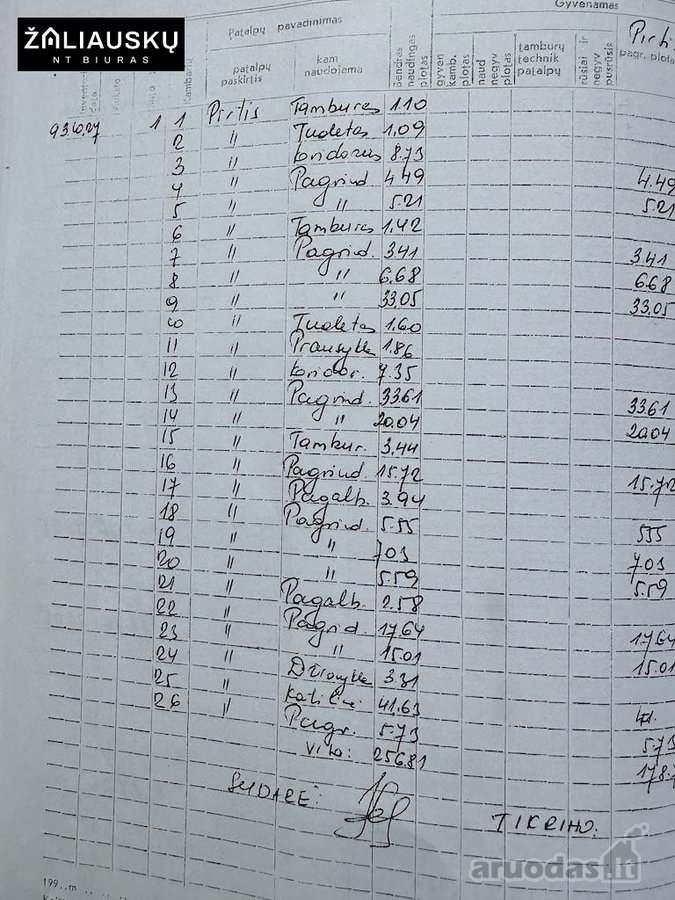 ŽALIAUSKŲ
NT BIURAS
Gyvenamas
Patalpų pavadinimas
patalpų paskirtis
kam naudojama
bendras naudingas plotas
gyven kamb. plotas
naud negyv plotas
tamburų technik patalpų
rūsiai ir negyv pusrūsis
Pirti
pagr. plota
Kambarių
93.10.27 1 1 Pirtis Tamburas 1.10
2 " Tualetas 1.09
3 " Koridorius 8.73
4 " Pagrind 4.49 4.49
5 " " 5.21 5.21
6 " Tamburas 1.42
7 " Pagrind. 3.41 3.41
8 " " 6.68 6.68
9 " " 33.05 33.05
10 " Tualetas 1.60
11 " Prausykla 1.86
12 " Koridor. 7.35
13 " Pagrind. 33.61 33.61
14 " " 20.04 20.04
15 " Tambur. 3.44
16 " Pagrind. 15.72 15.72
17 " Pagalb. 3.94
18 " Pagrind. 5.55 5.55
19 " " 7.03 7.03
20 " " 5.59 5.59
21 " Pagalb. 2.58
22 " Pagrid. 17.64 17.64
23 " " 15.01 15.01
24 " Džiovykla 3.31
25 " Katilinė 41.63
26 " Pagr. 5.73 5.73
Viso: 256.81 178.7
SUDARĖ:
TIKRINO.
aruodas.lt
199..m